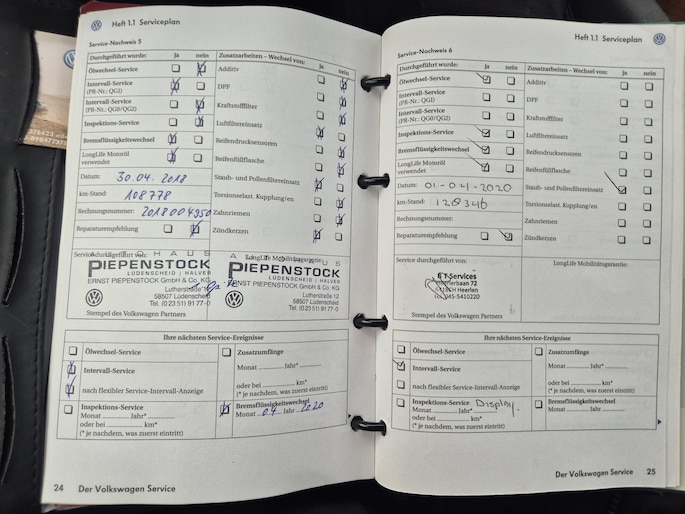 Heft 1.1 Serviceplan
Service-Nachweis 5
Durchgeführt wurde: ja nein
Ölwechsel-Service
Intervall-Service
(PR-Nr.: QG1)
Intervall-Service
(PR-Nr.: QG0/QG2)
Inspektions-Service
Bremsflüssigkeitswechsel
LongLife Motoröl
verwendet
Datum: 30.04.2018
km-Stand: 108778
Rechnungsnummer: 2018004950
Reparaturempfehlung
Zusatzarbeiten – Wechsel von: ja nein
Additiv
DPF
Kraftstofffilter
Luftfiltereinsatz
Reifendrucksensoren
Reifenfüllflasche
Staub- und Pollenfiltereinsatz
Torsionselast. Kupplung/en
Zahnriemen
Zündkerzen
Service durchgeführt von:
AUTOHAUS
PIEPENSTOCK
LÜDENSCHEID | HALVER
ERNST PIEPENSTOCK GmbH & Co. KG
Lutherstraße 12
58507 Lüdenscheid
Tel. (0 23 51) 91 77-0
Stempel des Volkswagen Partners
LongLife Mobilitätsgarantie:
PIEPENSTOCK
LÜDENSCHEID | HALVER
ERNST PIEPENSTOCK GmbH & Co. KG
Lutherstraße 12
58507 Lüdenscheid
Tel. (0 23 51) 91 77-0
Ihre nächsten Service-Ereignisse
Ölwechsel-Service
Intervall-Service
nach flexibler Service-Intervall-Anzeige
Inspektions-Service
Monat Jahr*
oder bei km*
(* je nachdem, was zuerst eintritt)
Zusatzumfänge
Monat Jahr*
oder bei km*
(* je nachdem, was zuerst eintritt)
Bremsflüssigkeitswechsel
Monat 04 Jahr 2020
24 Der Volkswagen Service
Heft 1.1 Serviceplan
Service-Nachweis 6
Durchgeführt wurde: ja nein
Ölwechsel-Service
Intervall-Service
(PR-Nr.: QG1)
Intervall-Service
(PR-Nr.: QG0/QG2)
Inspektions-Service
Bremsflüssigkeitswechsel
LongLife Motoröl
verwendet
Datum: 01-04-2020
km-Stand: 128346
Rechnungsnummer:
Reparaturempfehlung
Zusatzarbeiten – Wechsel von: ja nein
Additiv
DPF
Kraftstofffilter
Luftfiltereinsatz
Reifendrucksensoren
Reifenfüllflasche
Staub- und Pollenfiltereinsatz
Torsionselast. Kupplung/en
Zahnriemen
Zündkerzen
Service durchgeführt von:
Services
72
Heerlen
45-5410220
Stempel des Volkswagen Partners
LongLife Mobilitätsgarantie:
Ihre nächsten Service-Ereignisse
Ölwechsel-Service
Intervall-Service
nach flexibler Service-Intervall-Anzeige
Inspektions-Service Display.
Monat Jahr*
oder bei km*
(* je nachdem, was zuerst eintritt)
Zusatzumfänge
Monat Jahr*
oder bei km*
(* je nachdem, was zuerst eintritt)
Bremsflüssigkeitswechsel
Monat Jahr
Der Volkswagen Service 25